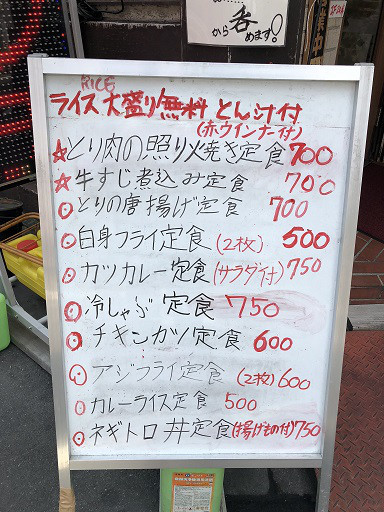 呑
から めます!
RICE
ライス大盛り無料 とん汁付
(赤ウインナー付)
☆とり肉の照り焼き定食 700
☆牛すじ煮込み定食 700
◎とりの唐揚げ定食 700
◎白身フライ定食(2枚) 500
◎カツカレー定食(サラダ付)750
◎冷しゃぶ定食 750
◎チキンカツ定食 600
◎アジフライ定食(2枚)600
◎カレーライス定食 500
◎ネギトロ丼定食(揚げもの付)750